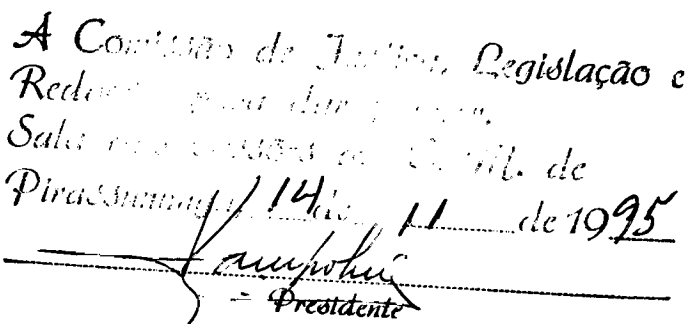 A Comissão de Justiça, Legislação e
Redação para dar parecer.
Sala das Sessões da C. M. de
Pirassununga, 14 de 11 de 1995
Presidente